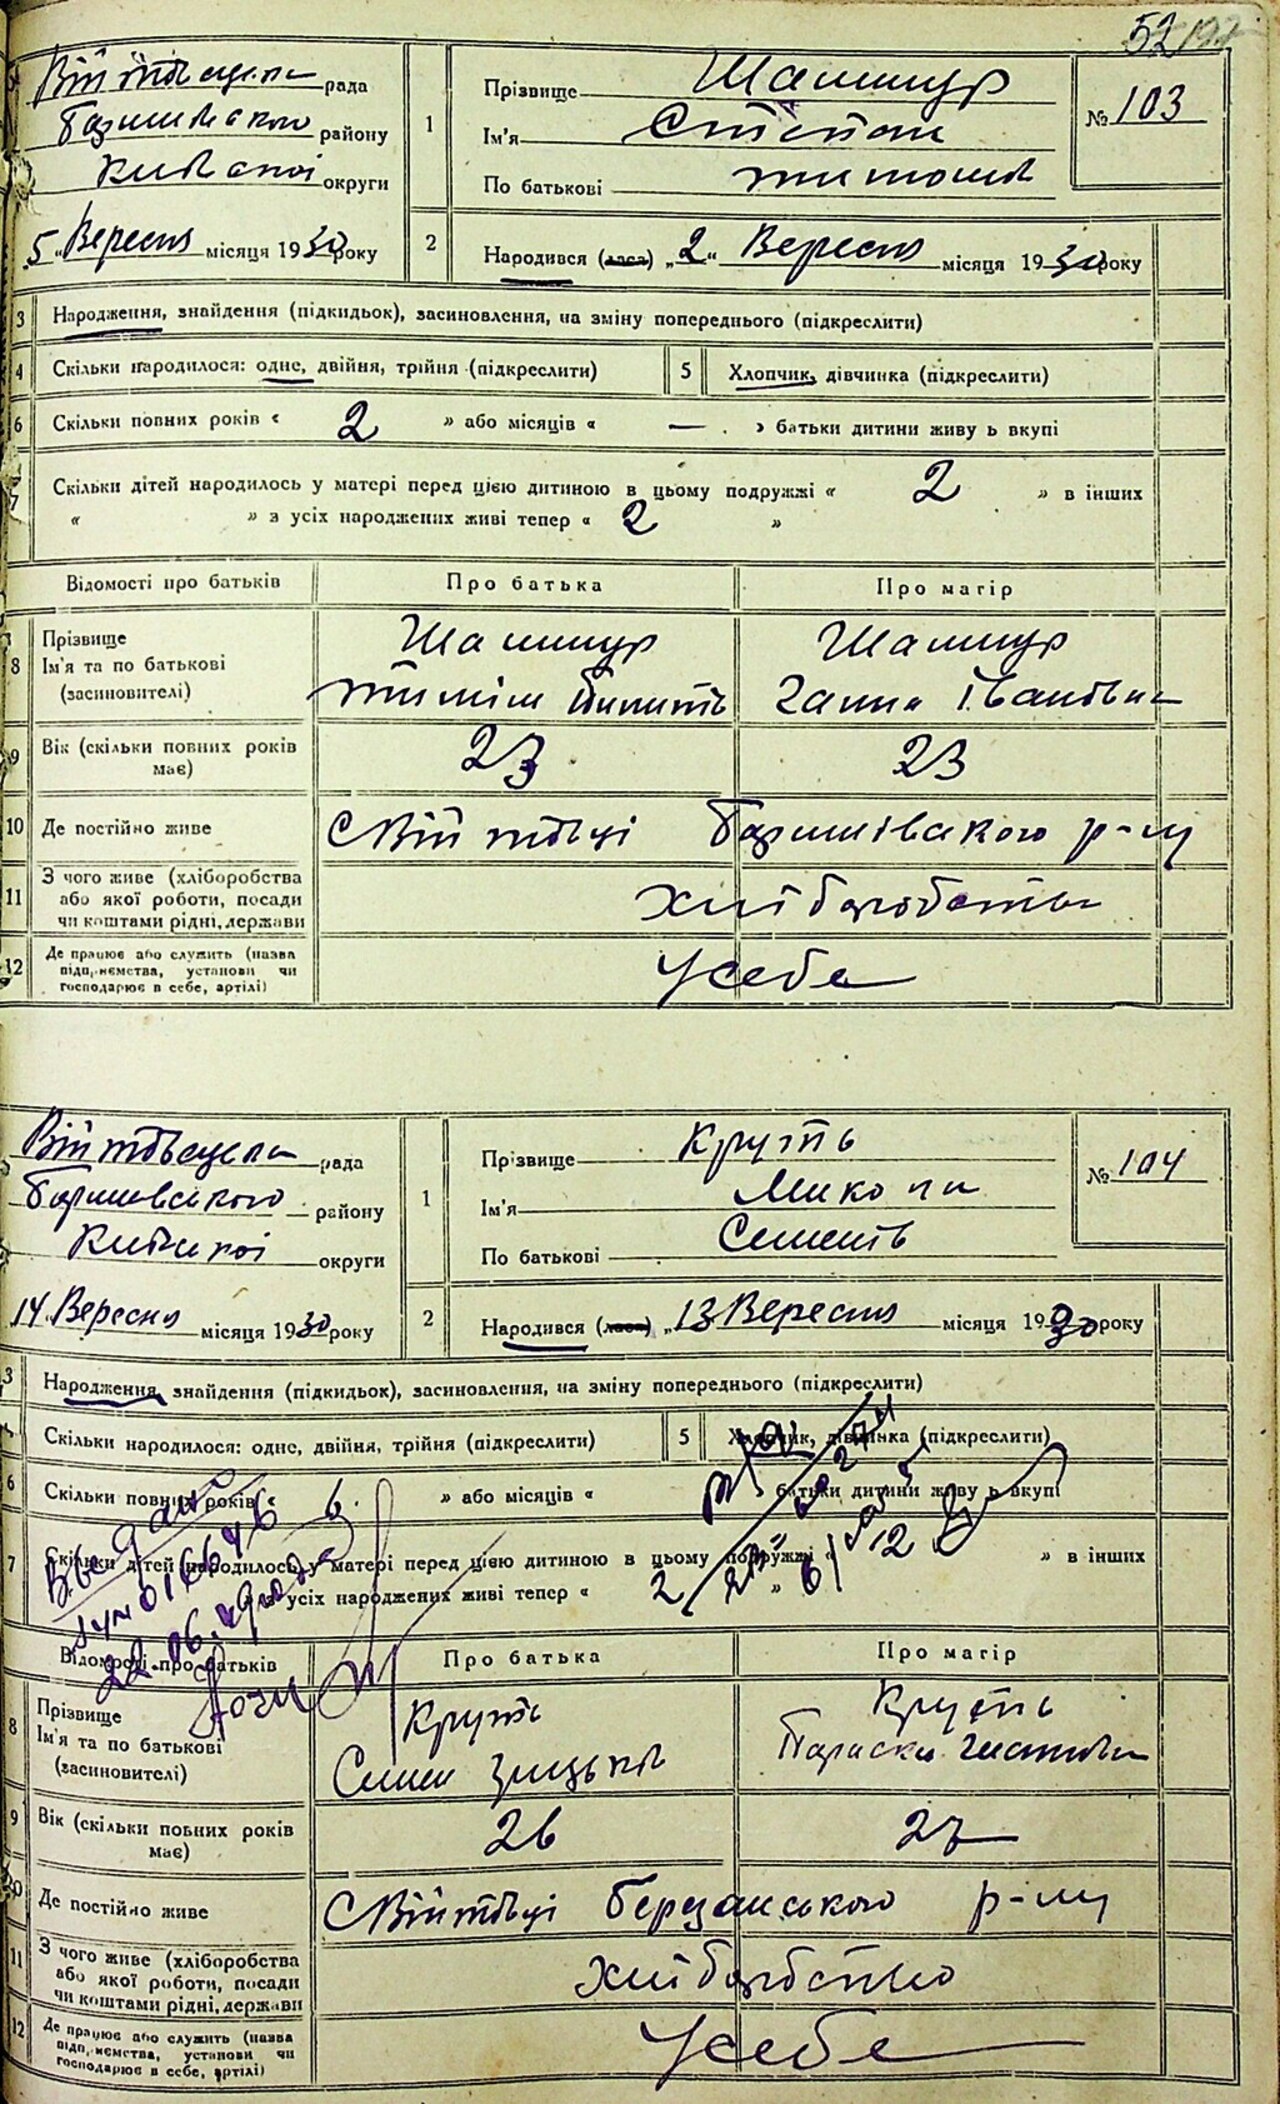 52
Війтовецька рада
району
округи
5 " Вересня місяця 1930 року
1
Прізвище Шаммур
Ім'я Степан
По батькові Тимошів
№ 103
2
Народився (лася) „ 2 " Вересня місяця 1930 року
3 Народження, знайдення (підкидьок), засиновлення, на зміну попереднього (підкреслити)
4 Скільки народилося: одне, двійня, трійня (підкреслити)
5 Хлопчик, дівчинка (підкреслити)
6 Скільки повних років « 2 » або місяців « — » батьки дитини живуть вкупі
7 Скільки дітей народилось у матері перед цією дитиною в цьому подружжі « 2 » в інших
« » з усіх народжених живі тепер « 2 »
Відомості про батьків Про батька Про матір
8 Прізвище
Ім'я та по батькові
(засиновителі)
Шаммур
Шаммур
Ганна Івановна
9 Вік (скільки повних років
має)
23
23
10 Де постійно живе
с Війтовці Баришівського р-ну
11 З чого живе (хліборобства
або якої роботи, посади
чи коштами рідні, держави
12 Де працює або служить (назва
підприємства, установи чи
господарює в себе, артілі)
У себе
Війтовецька рада
Баришевського району
округи
14 " Вересня місяця 1930 року
1
Прізвище Круть
Ім'я Микола
По батькові Семенів
№ 104
2
Народився (лася) „ 13 Вересня місяця 1930 року
3 Народження, знайдення (підкидьок), засиновлення, на зміну попереднього (підкреслити)
Скільки народилося: одне, двійня, трійня (підкреслити)
5 Хлопчик, дівчинка (підкреслити)
6 Скільки повних років « 6 » або місяців « » батьки дитини живуть вкупі
7 Скільки дітей народилось у матері перед цією дитиною в цьому подружжі « » в інших
з усіх народжених живі тепер « 2 »
Відомості про батьків Про батька Про матір
8 Прізвище
Ім'я та по батькові
(засиновителі)
Круть
Семен
Круть
Параска
9 Вік (скільки повних років
має)
26
27
Де постійно живе
с Війтовці Березанського р-ну
11 З чого живе (хліборобства
або якої роботи, посади
чи коштами рідні, держави
хліборобство
12 Де працює або служить (назва
підприємства, установи чи
господарює в себе, артілі)
У себе